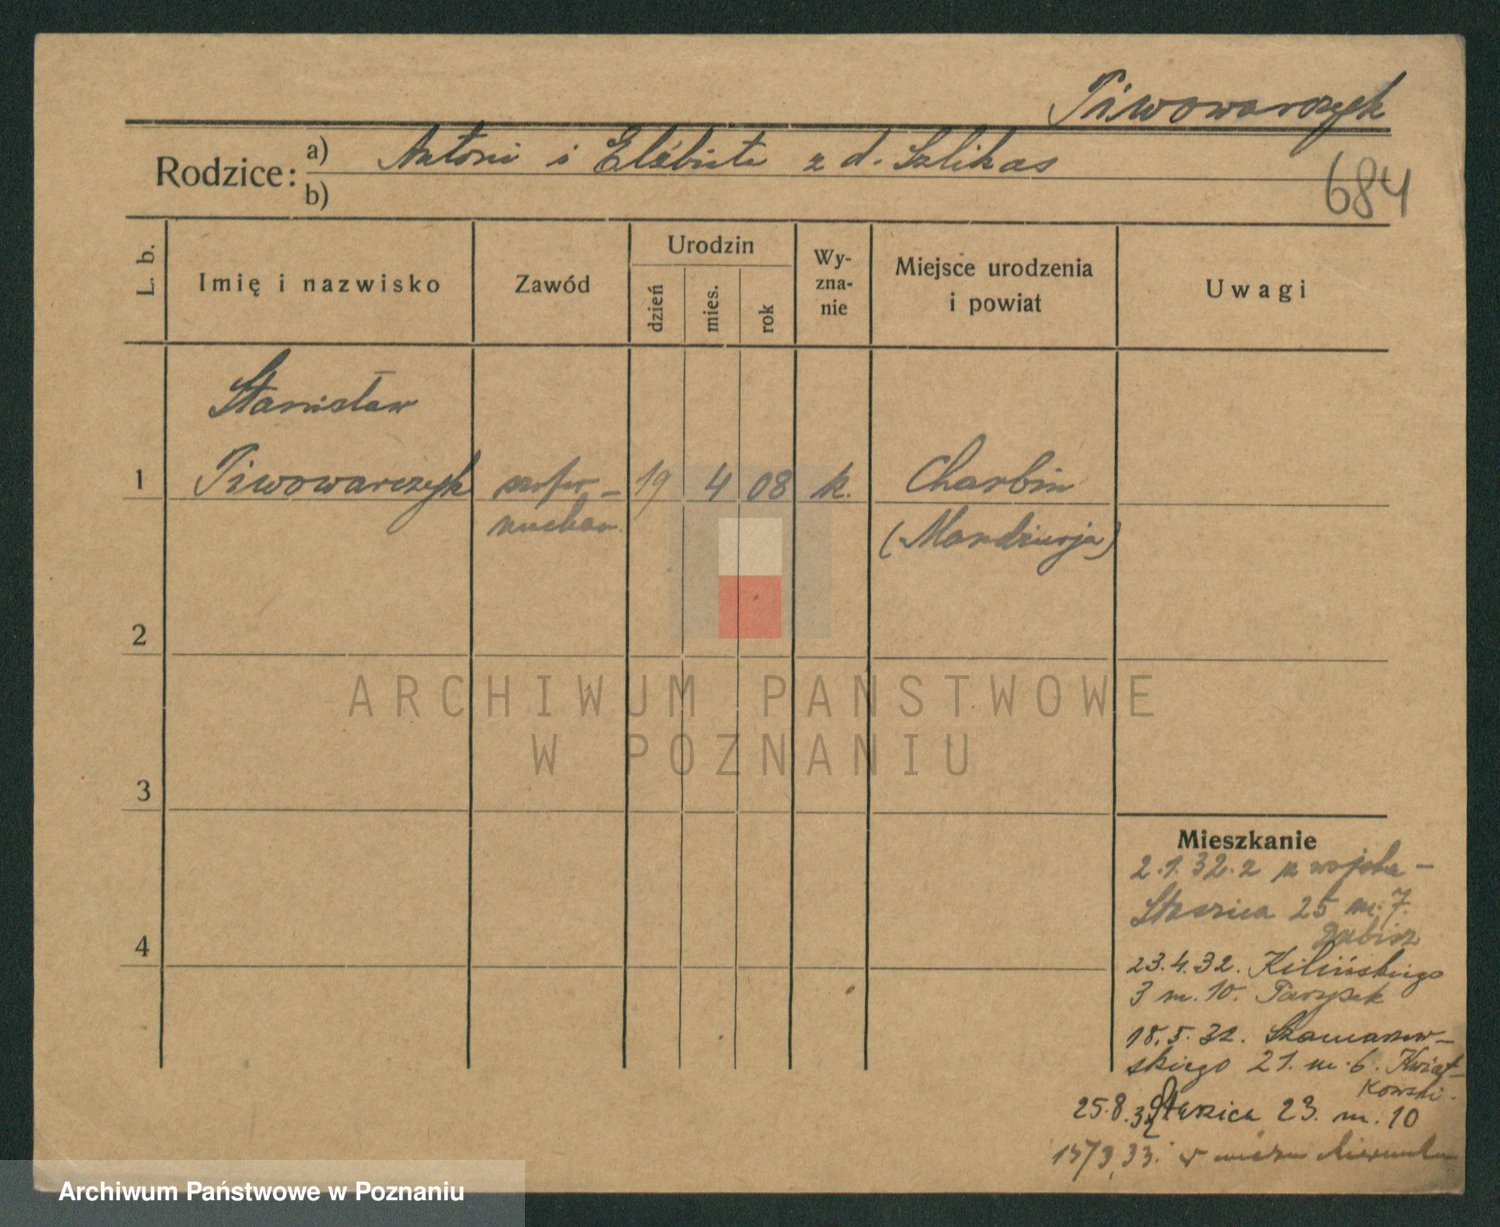 Piwowarczyk
Rodzice: a) Antoni i Elżbieta z d. Szlikas
b)
684
L. b.
Imię i nazwisko
Zawód
Urodzin
dzień
mies.
rok
Wy-
zna-
nie
Miejsce urodzenia
i powiat
Uwagi
Stanisław
1 Piwowarczyk szofer- 19 4 08 k. Charbin
(Mandżurja)
2
3
4
ARCHIWUM PAŃSTWOWE
W POZNANIU
Mieszkanie
2.1.32. z wojska-
Staszica 25 m. 7.
23.4.32. Kilińskiego
3 m. 10.
18.5.32. Szamarzew-
skiego 21. m. 6. Kwiat-
kowski.
25.8.32 Staszica 23. m. 10
33.
Archiwum Państwowe w Poznaniu